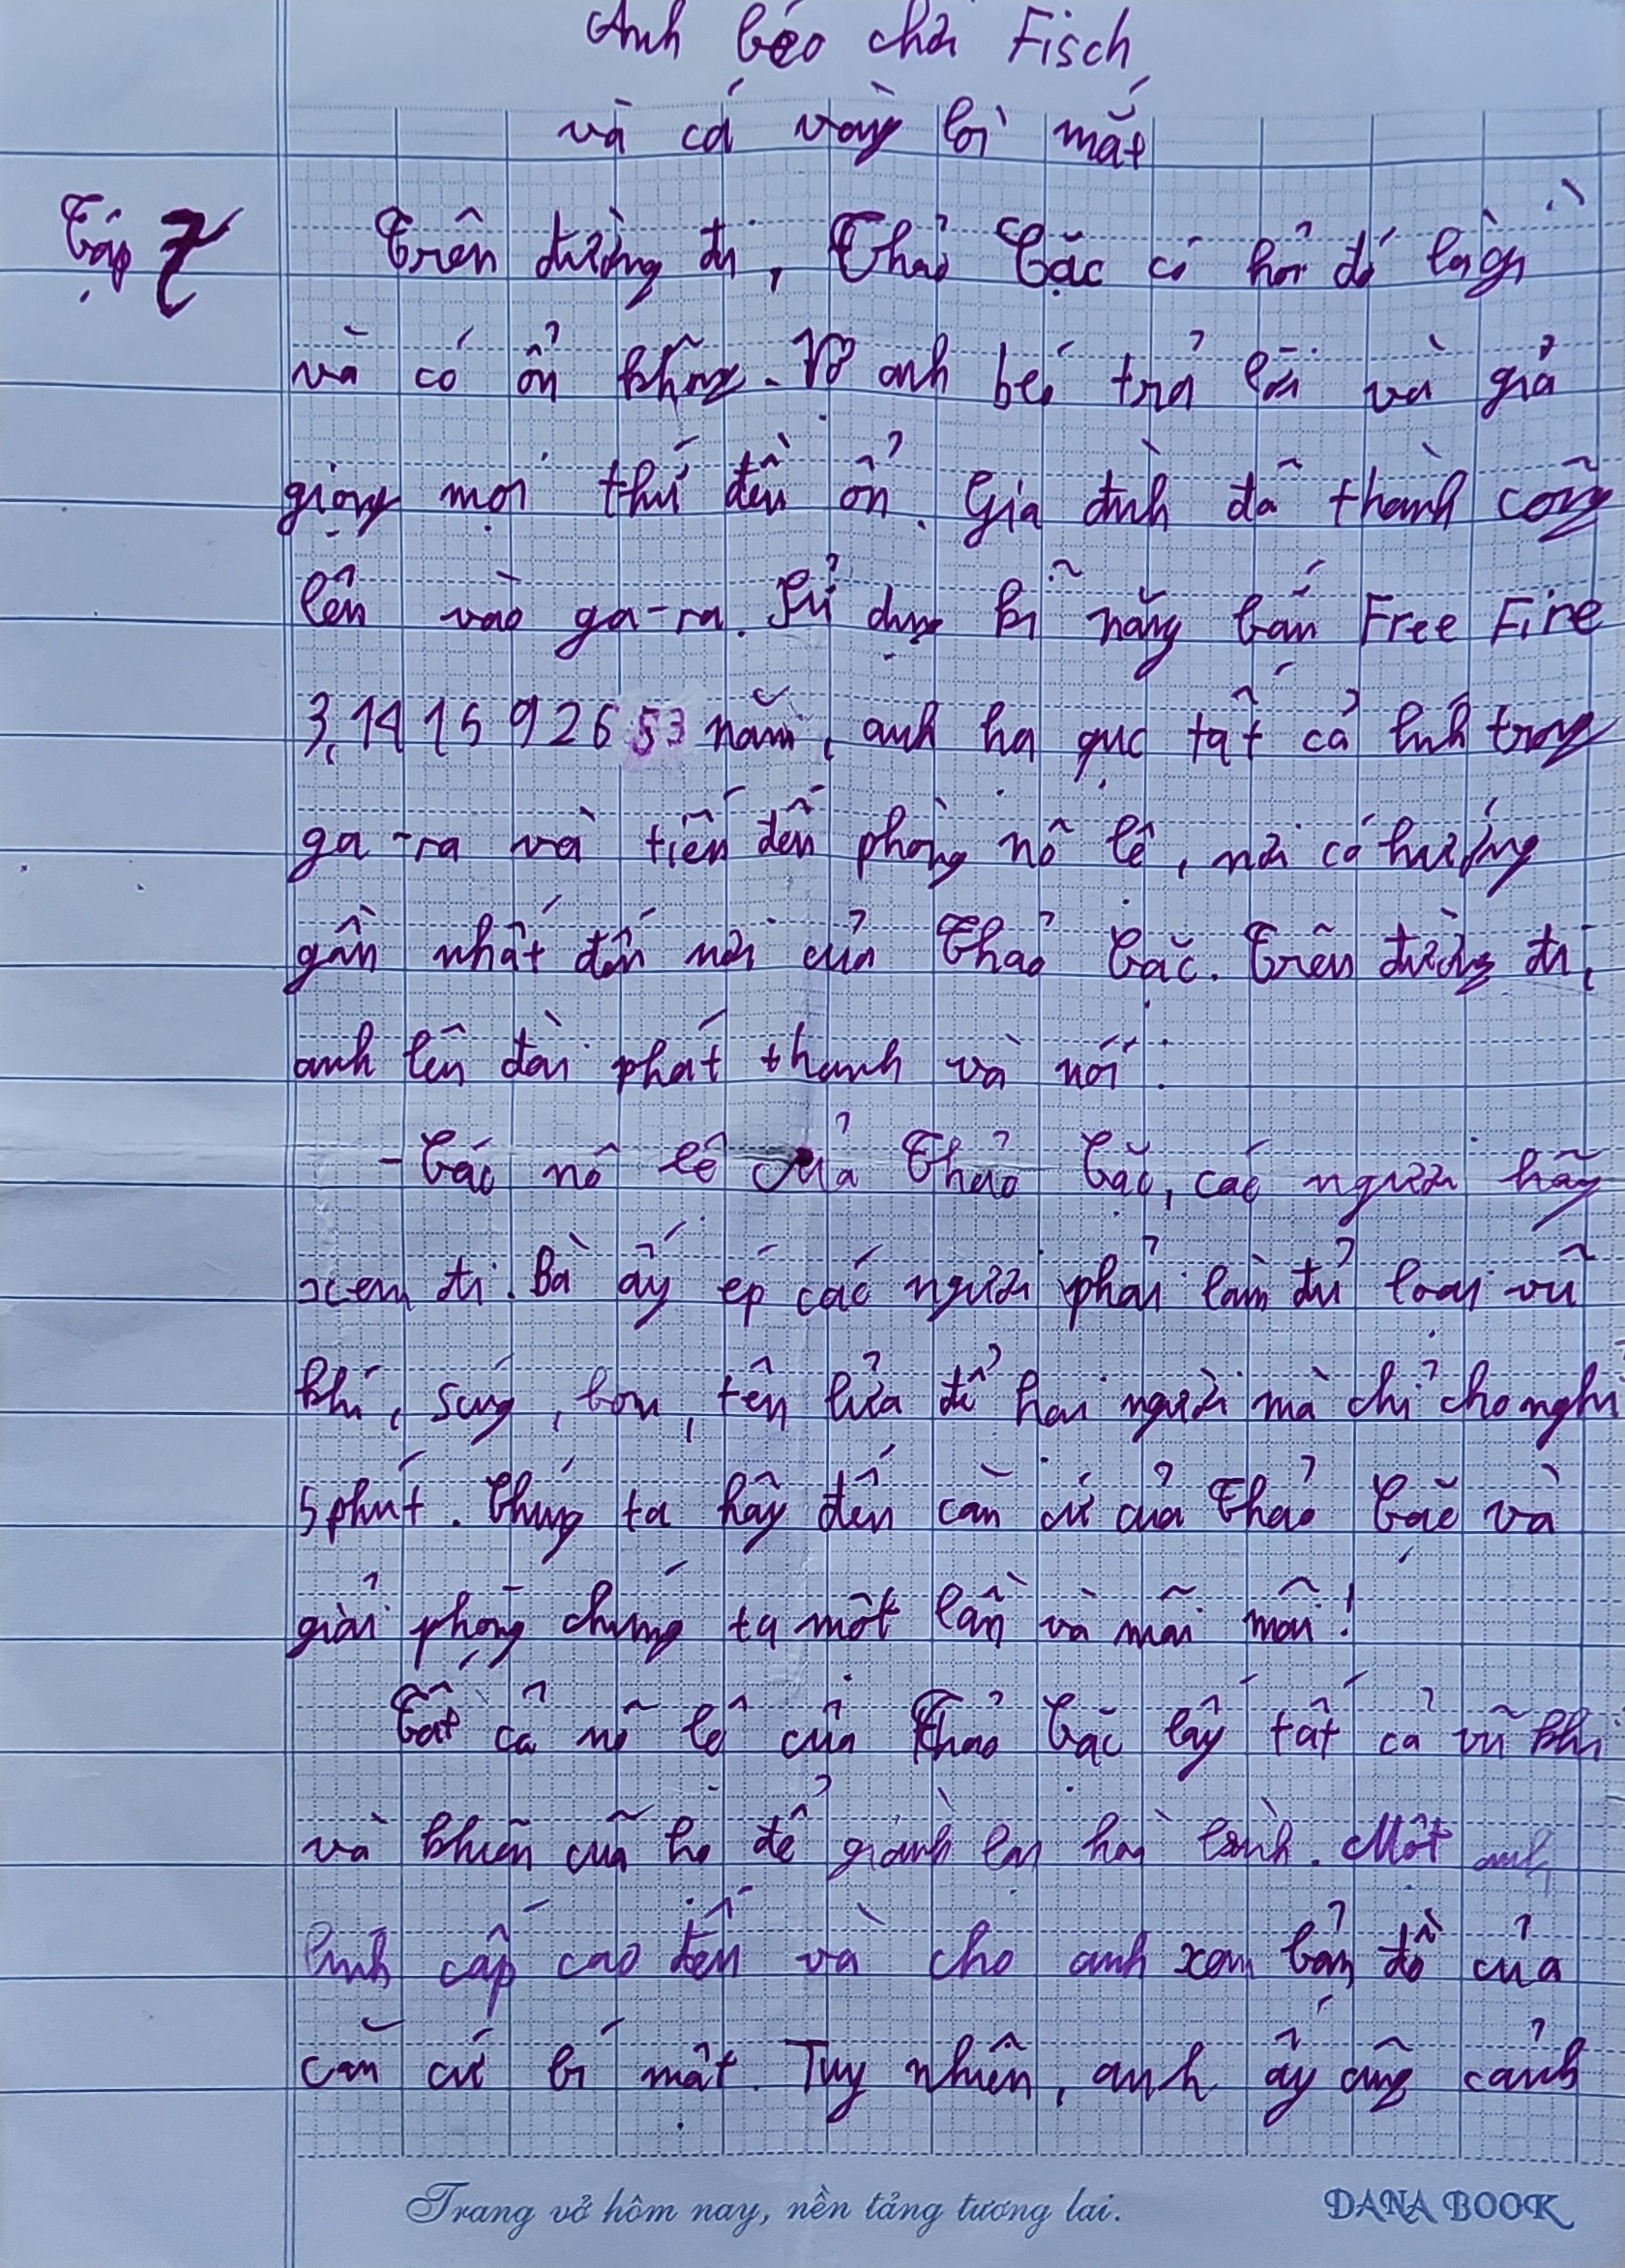 Anh béo chơi Fisch
và cá vàng bị mất
Tập 7
Trên đường đi, Thảo Cặc có hỏi đó là gì
và có ổn không. Vợ anh béo trả lời và giả
giọng mọi thứ đều ổn. Gia đình đã thành công
lẻn vào ga-ra. Sử dụng kĩ năng bắn Free Fire
3,1415926553 năm, anh hạ gục tất cả lính trong
ga-ra và tiến đến phòng nô lệ, nơi có hướng
gần nhất đến nơi của Thảo Cặc. Trên đường đi,
anh lên đài phát thanh và nói:
- Các nô lệ của Thảo Cặc, các người hãy
xem đi. Bà ấy ép các người phải làm đủ loại vũ
khí, súng, bom, tên lửa để hại người mà chỉ cho nghỉ
5 phút. Chúng ta hãy đến căn cứ của Thảo Cặc và
giải phóng chúng ta một lần và mãi mãi!
Tất cả nô lệ của Thảo Cặc lấy tất cả vũ khí
và khiên của họ để giành lại hoà bình. Một anh
lính cấp cao đến và cho anh xem bản đồ của
căn cứ bí mật. Tuy nhiên, anh ấy cũng cảnh
Trang vở hôm nay, nền tảng tương lai.
DANA BOOK